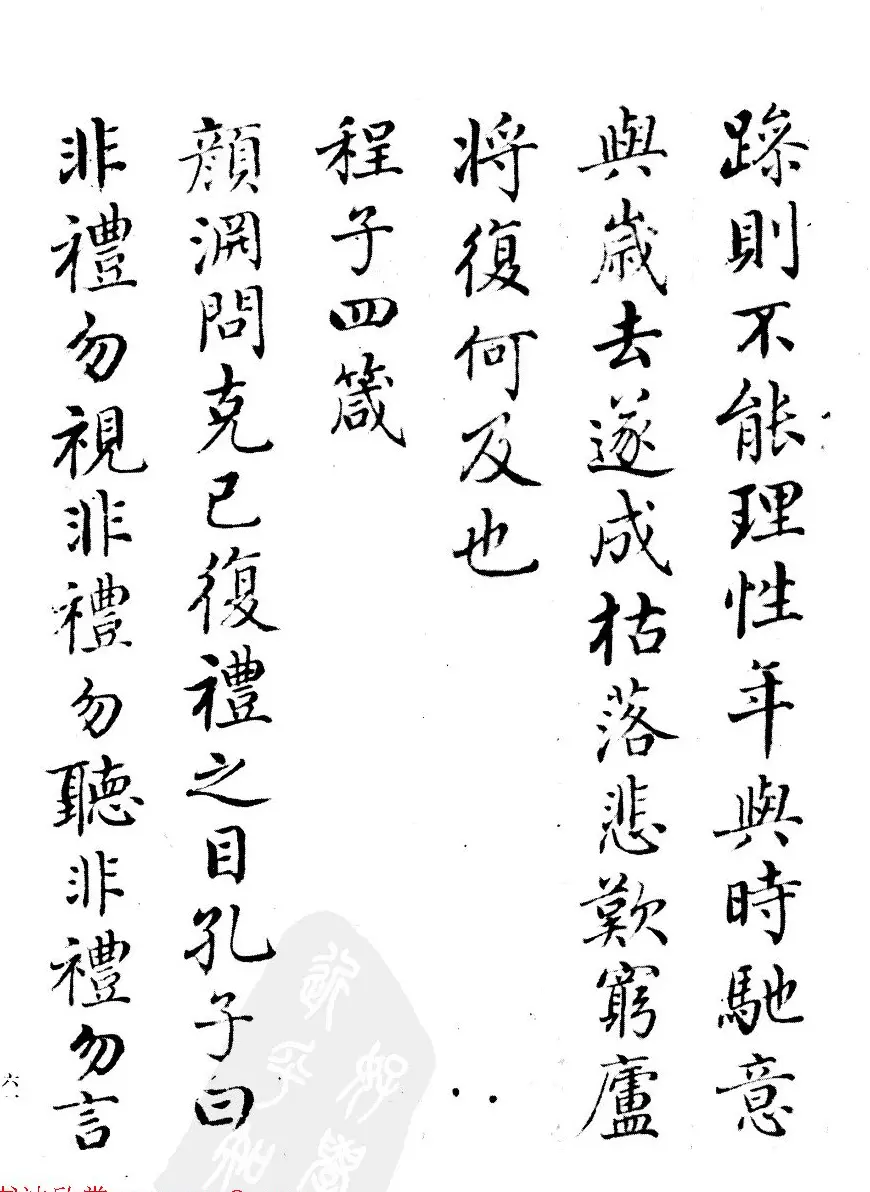 躁則不能理性年與時馳意
與歲去遂成枯落悲歎窮廬
將復何及也
程子四箴
顏淵問克己復禮之目孔子曰
非禮勿視非禮勿聽非禮勿言
六一